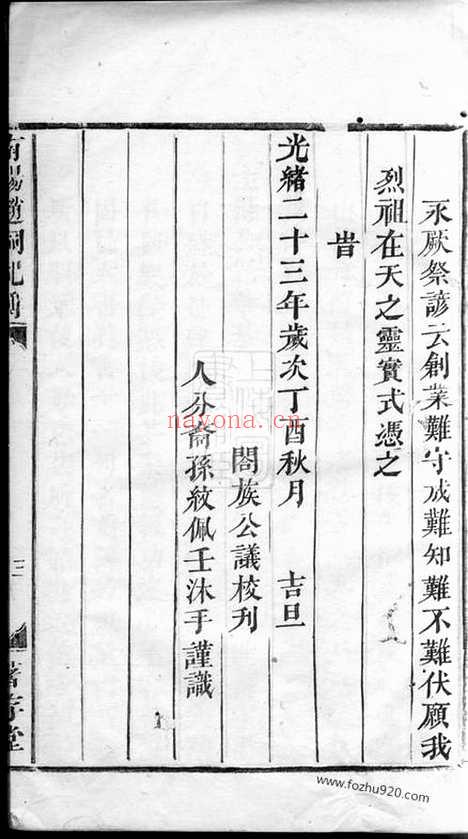 永厥祭諺云創業難守成難知難不難伏願我
烈祖在天之靈實式憑之
旹
光緒二十三年歲次丁酉秋月 吉旦
閤族公議校刊
八分裔孫紋佩壬沐手謹識
三
nayona.cn
www.fozhu920.com